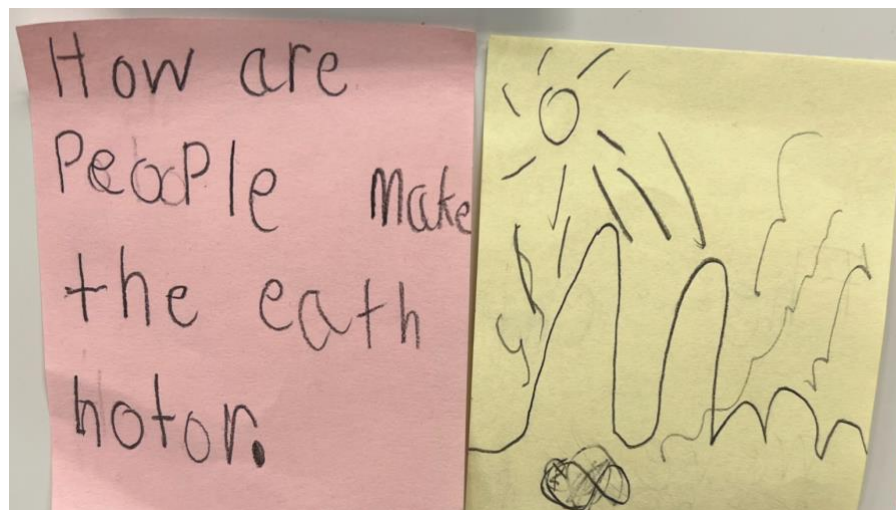 How are
PeoPle make
the eath
hotor.